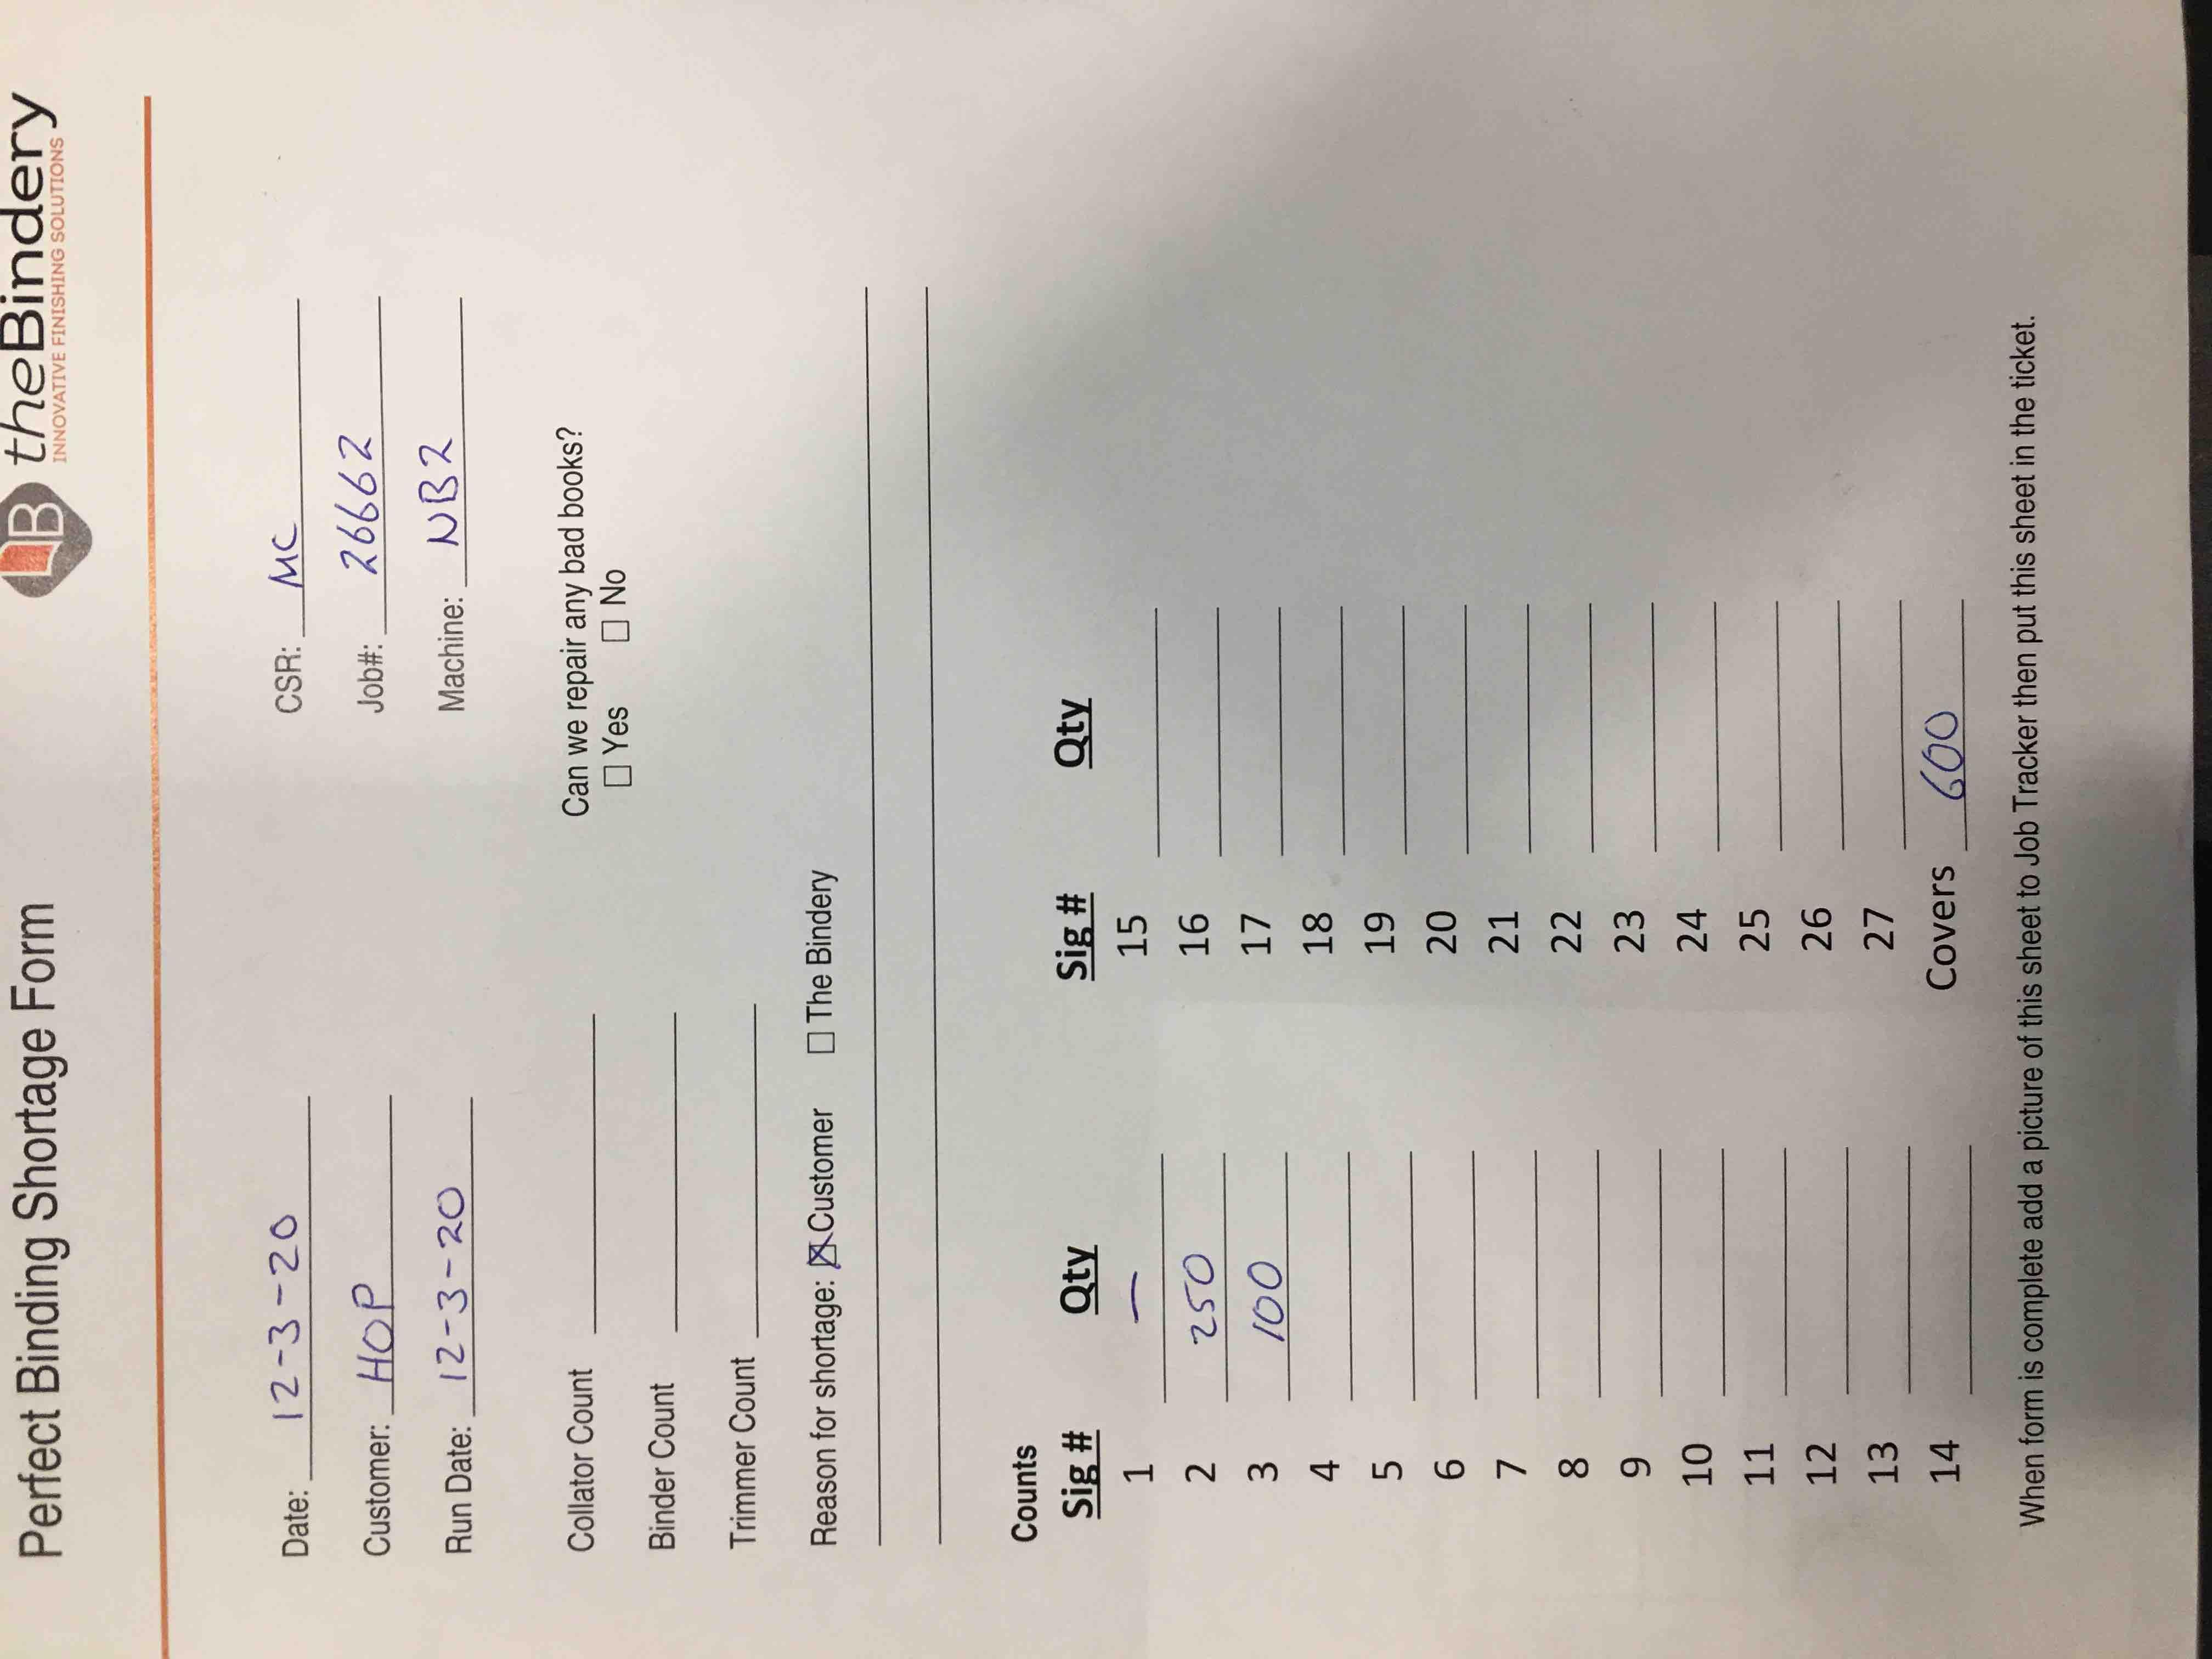 Perfect Binding Shortage Form
B theBindery
INNOVATIVE FINISHING SOLUTIONS
Date: 12-3-20 CSR: MC
Customer: HOP Job#: 26662
Run Date: 12-3-20 Machine: NB2
Collator Count Can we repair any bad books?
☐ Yes ☐ No
Binder Count
Trimmer Count
Reason for shortage: ☒ Customer ☐ The Bindery
Counts
Sig # Qty Sig # Qty
1 — 15
2 250 16
3 100 17
4 18
5 19
6 20
7 21
8 22
9 23
10 24
11 25
12 26
13 27
14 Covers 600
When form is complete add a picture of this sheet to Job Tracker then put this sheet in the ticket.